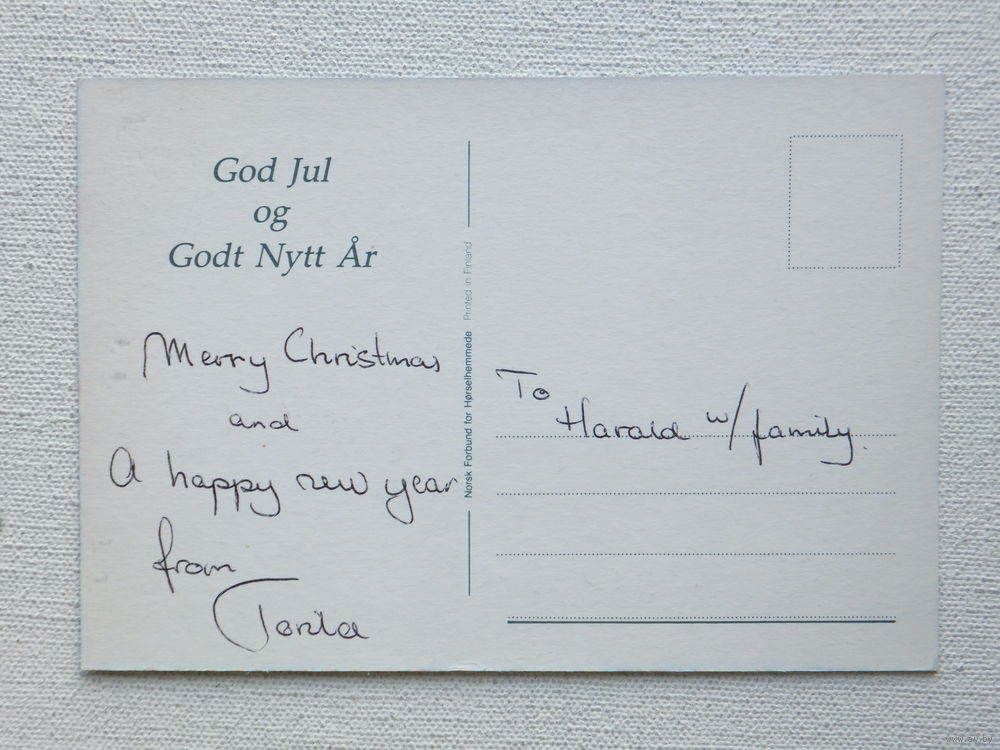 God Jul
og
Godt Nytt År
Merry Christmas
and
A happy new year
from
Norsk Forbund for Hørselhemmede Printed in Finland
To
Harald w/family.
www.ay.by